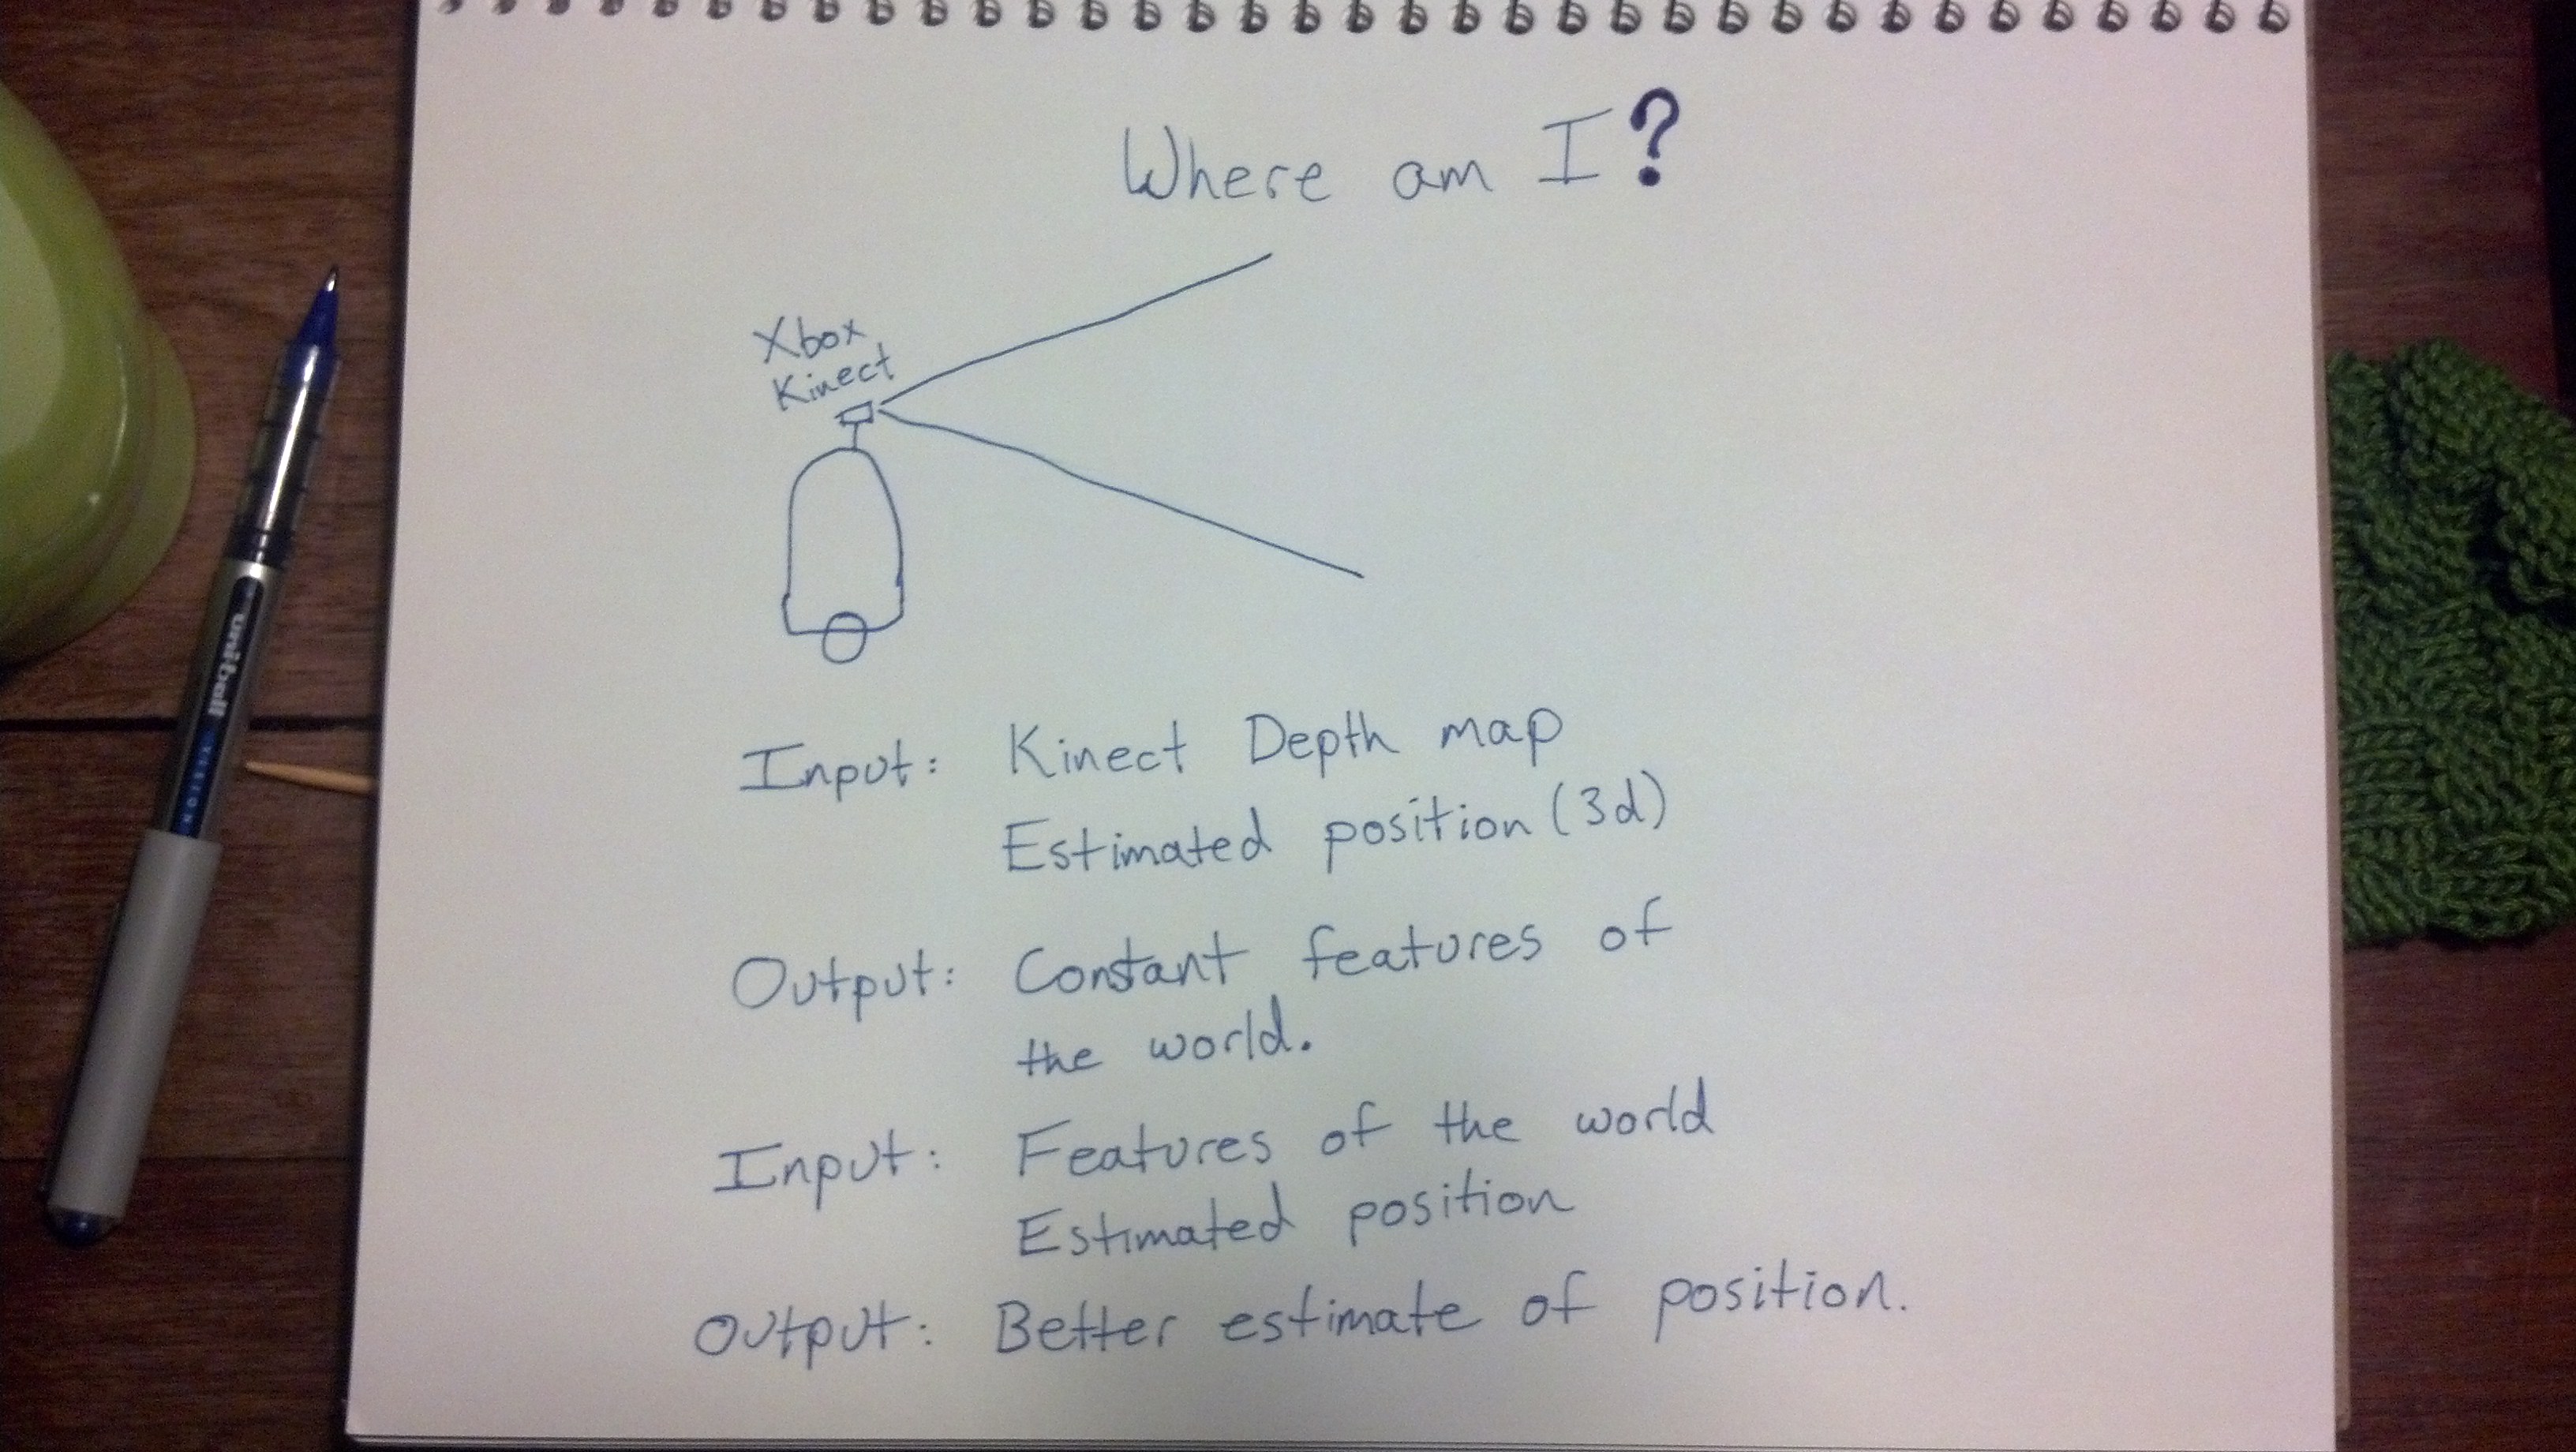 Where am I?
Xbox
Kinect
Input: Kinect Depth map
Estimated position (3d)
Output: Constant features of
the world.
Input: Features of the world
Estimated position
Output: Better estimate of position.
uniball
VISION